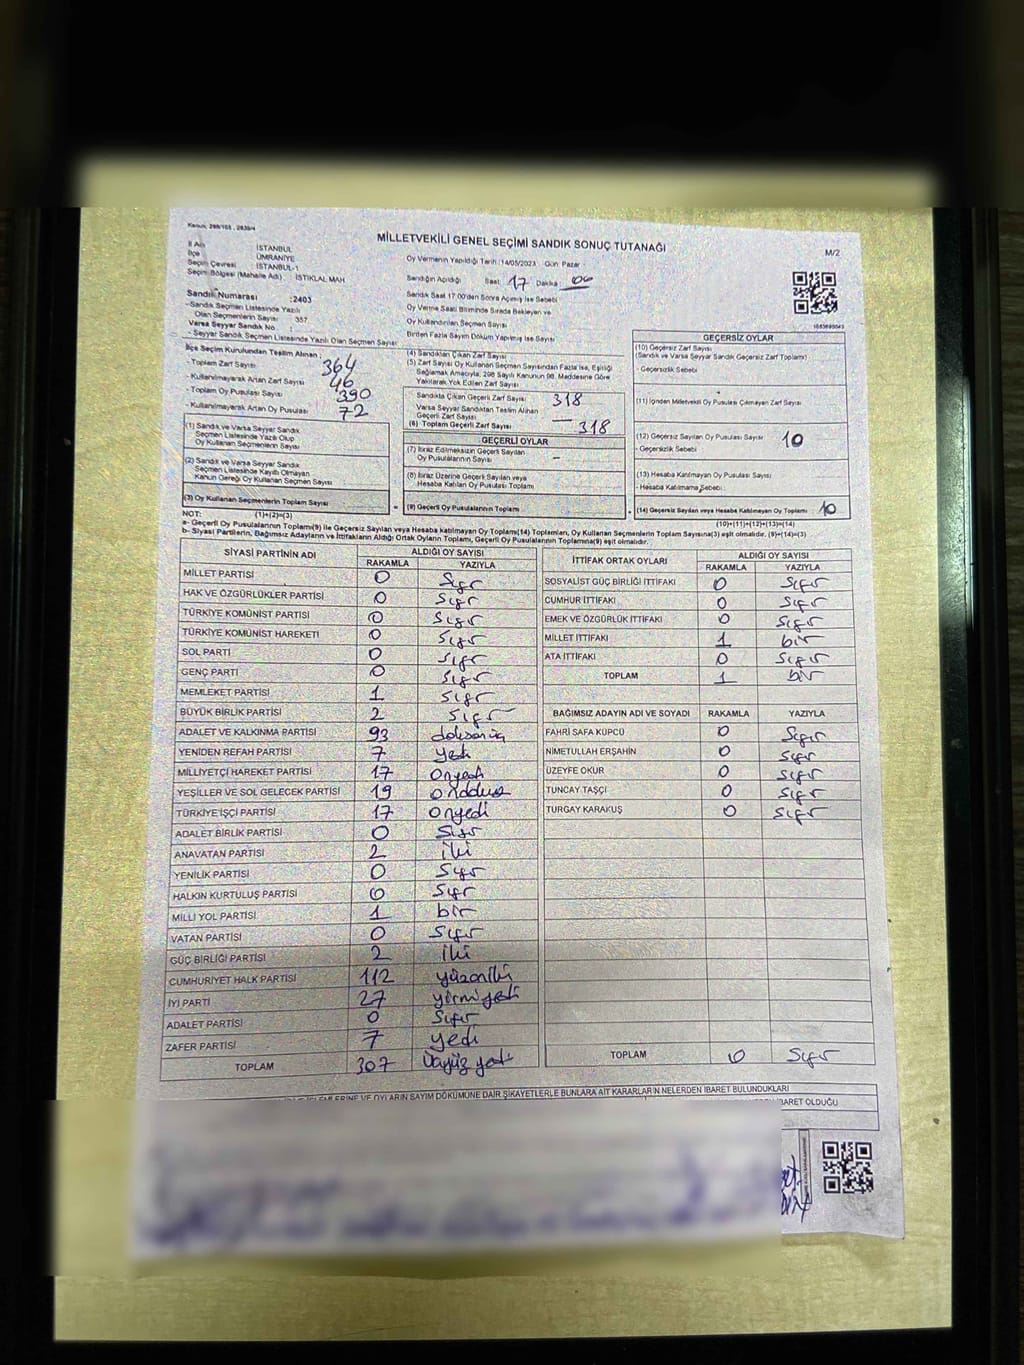 Kanun; 298/105 , 2839/4
MİLLETVEKİLİ GENEL SEÇİMİ SANDIK SONUÇ TUTANAĞI
M/2
İl Adı İSTANBUL
İlçe ÜMRANİYE
Seçim Çevresi İSTANBUL-1
Seçim Bölgesi (Mahalle Adı) : İSTİKLAL MAH
Oy Vermenin Yapıldığı Tarih :14/05/2023 Gün: Pazar
Sandığın Açıldığı Saat: 17 Dakika 00
Sandık Saat 17:00'den Sonra Açılmış İse Sebebi
Oy Verme Saati Bitiminde Sırada Bekleyen ve
Oy Kullandırılan Seçmen Sayısı
Birden Fazla Sayım Döküm Yapılmış İse Sayısı
Sandık Numarası :2403
-Sandık Seçmen Listesinde Yazılı
Olan Seçmenlerin Sayısı 357
Varsa Seyyar Sandık No :
- Seyyar Sandık Seçmen Listesinde Yazılı Olan Seçmen Sayısı
İlçe Seçim Kurulundan Teslim Alınan ;
- Toplam Zarf Sayısı 364
- Kullanılmayarak Artan Zarf Sayısı 46
- Toplam Oy Pusulası Sayısı 390
- Kullanılmayarak Artan Oy Pusulası 72
(1) Sandık ve Varsa Seyyar Sandık
Seçmen Listesinde Yazılı Olup
Oy Kullanan Seçmenlerin Sayısı
(2) Sandık ve Varsa Seyyar Sandık
Seçmen Listesinde Kayıtlı Olmayan
Kanun Gereği Oy Kullanan Seçmen Sayısı
(3) Oy Kullanan Seçmenlerin Toplam Sayısı
(4) Sandıktan Çıkan Zarf Sayısı
(5) Zarf Sayısı Oy Kullanan Seçmen Sayısından Fazla ise, Eşitliği
Sağlamak Amacıyla, 298 Sayılı Kanunun 98. Maddesine Göre
Yakılarak Yok Edilen Zarf Sayısı
Sandıkta Çıkan Geçerli Zarf Sayısı 318
Varsa Seyyar Sandıktan Teslim Alınan
Geçerli Zarf Sayısı —
(6) Toplam Geçerli Zarf Sayısı 318
GEÇERLİ OYLAR
(7) İtiraz Edilmeksizin Geçerli Sayılan
Oy Pusulalarının Sayısı -
(8) İtiraz Üzerine Geçerli Sayılan veya
Hesaba Katılan Oy Pusulası Toplamı
(9) Geçerli Oy Pusulalarının Toplamı
GEÇERSİZ OYLAR
(10) Geçersiz Zarf Sayısı
(Sandık ve Varsa Seyyar Sandık Geçersiz Zarf Toplamı)
- Geçersizlik Sebebi
(11) İçinden Milletvekili Oy Pusulası Çıkmayan Zarf Sayısı
(12) Geçersiz Sayılan Oy Pusulası Sayısı 10
- Geçersizlik Sebebi
(13) Hesaba Katılmayan Oy Pusulası Sayısı
- Hesaba Katılmama Sebebi
(14) Geçersiz Sayılan veya Hesaba Katılmayan Oy Toplamı 10
NOT: (1)+(2)=(3) (10)+(11)+(12)+(13)=(14)
a- Geçerli Oy Pusulalarının Toplamı(9) ile Geçersiz Sayılan veya Hesaba Katılmayan Oy Toplamı(14) Toplamları, Oy Kullanan Seçmenlerin Toplam Sayısına(3) eşit olmalıdır. (9)+(14)=(3)
b- Siyasi Partilerin, Bağımsız Adayların ve İttifakların Aldığı Ortak Oyların Toplamı, Geçerli Oy Pusulalarının Toplamına(9) eşit olmalıdır.
SİYASİ PARTİNİN ADI ALDIĞI OY SAYISI
RAKAMLA YAZIYLA
MİLLET PARTİSİ 0 Sıfır
HAK VE ÖZGÜRLÜKLER PARTİSİ 0 Sıfır
TÜRKİYE KOMÜNİST PARTİSİ 0 Sıfır
TÜRKİYE KOMÜNİST HAREKETİ 0 Sıfır
SOL PARTİ 0 Sıfır
GENÇ PARTİ 0 Sıfır
MEMLEKET PARTİSİ 1 Sıfır
BÜYÜK BİRLİK PARTİSİ 2 Sıfır
ADALET VE KALKINMA PARTİSİ 93 doksanüç
YENİDEN REFAH PARTİSİ 7 yedi
MİLLİYETÇİ HAREKET PARTİSİ 17 Onyedi
YEŞİLLER VE SOL GELECEK PARTİSİ 19 Ondokuz
TÜRKİYE İŞÇİ PARTİSİ 17 Onyedi
ADALET BİRLİK PARTİSİ 0 Sıfır
ANAVATAN PARTİSİ 2 iki
YENİLİK PARTİSİ 0 Sıfır
HALKIN KURTULUŞ PARTİSİ 0 Sıfır
MİLLİ YOL PARTİSİ 1 bir
VATAN PARTİSİ 0 Sıfır
GÜÇ BİRLİĞİ PARTİSİ 2 iki
CUMHURİYET HALK PARTİSİ 112 yüzoniki
İYİ PARTİ 27 yirmi yedi
ADALET PARTİSİ 0 Sıfır
ZAFER PARTİSİ 7 yedi
TOPLAM 307 Üçyüz yedi
İTTİFAK ORTAK OYLARI ALDIĞI OY SAYISI
RAKAMLA YAZIYLA
SOSYALİST GÜÇ BİRLİĞİ İTTİFAKI 0 Sıfır
CUMHUR İTTİFAKI 0 Sıfır
EMEK VE ÖZGÜRLÜK İTTİFAKI 0 Sıfır
MİLLET İTTİFAKI 1 bir
ATA İTTİFAKI 0 Sıfır
TOPLAM 1 bir
BAĞIMSIZ ADAYIN ADI VE SOYADI RAKAMLA YAZIYLA
FAHRİ SAFA KÜPCÜ 0 Sıfır
NİMETULLAH ERŞAHİN 0 Sıfır
ÜZEYFE OKUR 0 Sıfır
TUNCAY TAŞÇI 0 Sıfır
TURGAY KARAKUŞ 0 Sıfır
TOPLAM 0 Sıfır
İŞLEMLERİNE VE OYLARIN SAYIM DÖKÜMÜNE DAİR ŞİKAYETLERLE BUNLARA AİT KARARLARIN NELERDEN İBARET BULUNDUKLARI
İBARET OLDUĞU